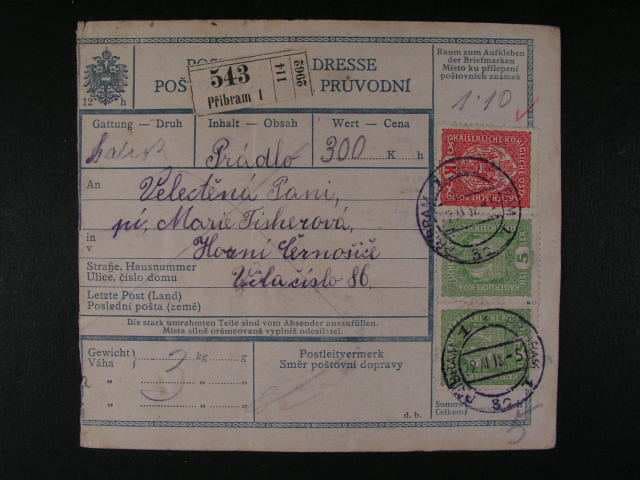 POS ADRESSE
POŠ PRŮVODNÍ
543
Příbram 1
114
2962
12 h
Raum zum Aufkleben
der Briefmarken
Místo ku přilepení
poštovních známek
1·10
Gattung — Druh
Inhalt — Obsah
Wert — Cena
Prádlo
300 K h
An
Veledtěná Paní,
pí, Marie Fišerová,
in
v
Horní Černošice
Straße, Hausnummer
Ulice, číslo domu
Villa číslo 86.
Letzte Post (Land)
Poslední pošta (země)
Die stark umrahmten Teile sind vom Absender auszufüllen.
Místa silně orámovaná vyplniž odesilatel.
Gewicht
Váha
3 kg g
Postleitvermerk
Směr poštovní dopravy
d. b.
5
PŘÍBRAM 1
PŘÍBRAM 1